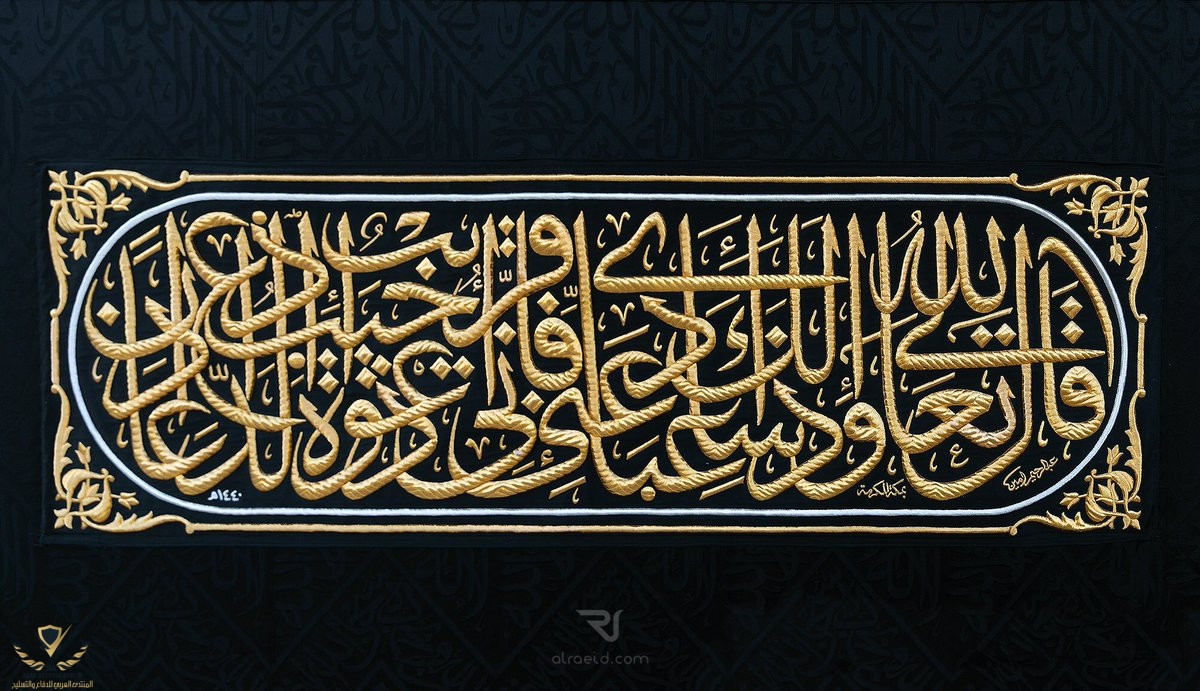 قَالَ اللهُ تَعَالَى وَإِذَا سَأَلَكَ عِبَادِي عَنِّي فَإِنِّي قَرِيبٌ أُجِيبُ دَعْوَةَ الدَّاعِ إِذَا دَعَانِ
عبدالرحيم أمين
بمكة المكرمة
١٤٤٠هـ
alraeid.com
المنتدى العربي للدفاع والتسليح